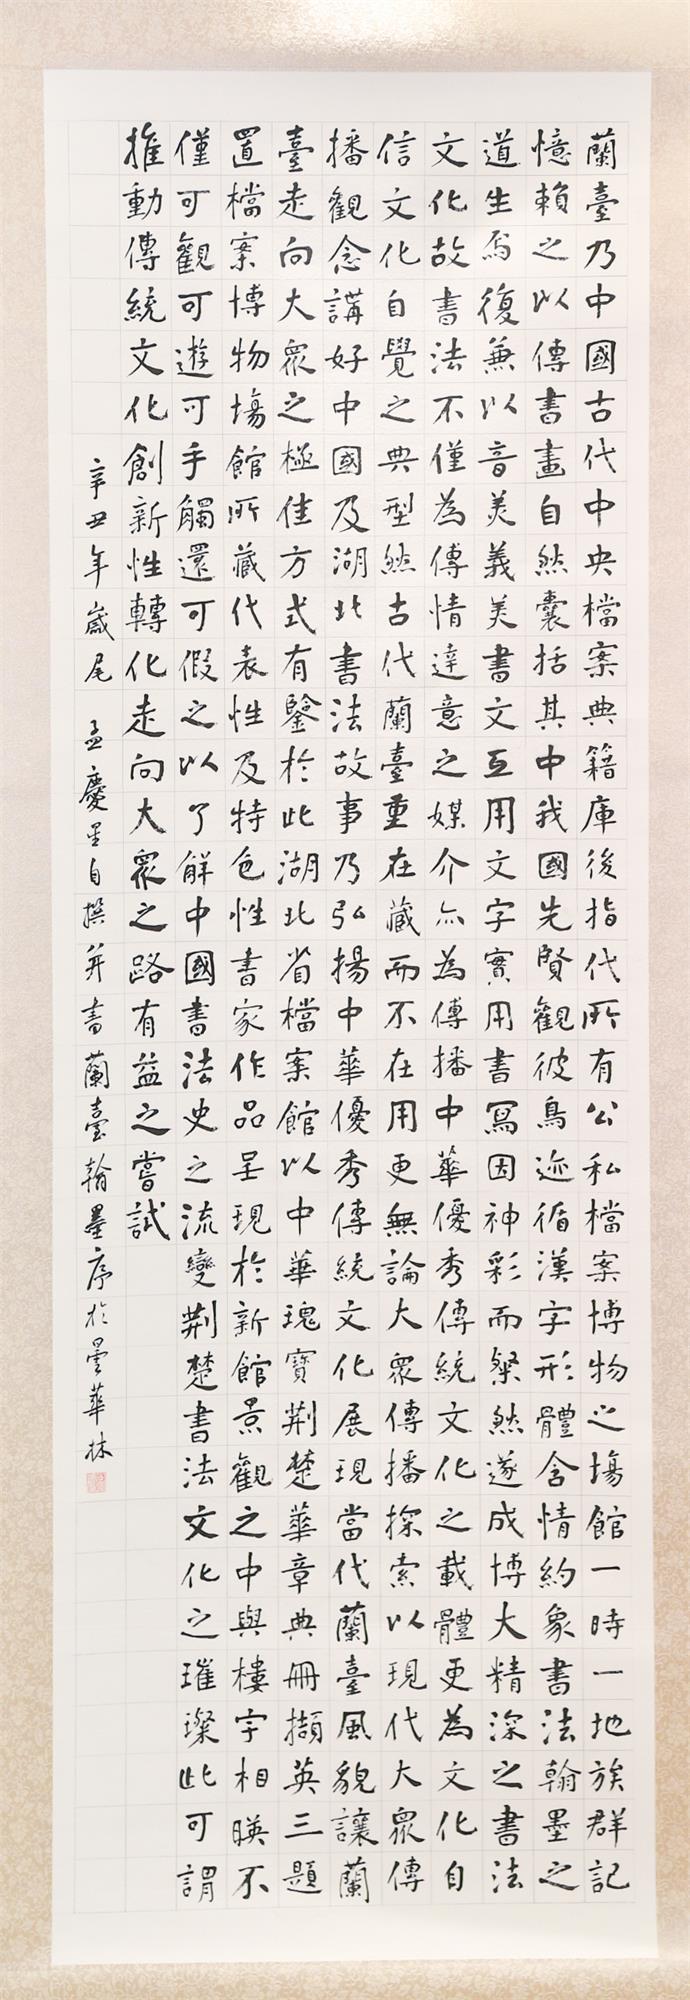 蘭臺乃中國古代中央檔案典籍庫後指代所有公私檔案博物之場館一時一地族群記
憶賴之以傳書畫自然囊括其中我國先賢觀彼鳥迹循漢字形體含情約象書法翰墨之
道生焉復兼以音美義美書文互用文字實用書寫因神彩而粲然遂成博大精深之書法
文化故書法不僅為傳情達意之媒介亦為傳播中華優秀傳統文化之載體更為文化自
信文化自覺之典型然古代蘭臺重在藏而不在用更無論大眾傳播探索以現代大眾傳
播觀念講好中國及湖北書法故事乃弘揚中華優秀傳統文化展現當代蘭臺風貌讓蘭
臺走向大眾之極佳方式有鑒於此湖北省檔案館以中華瑰寶荆楚華章典冊擷英三題
置檔案博物場館所藏代表性及特色性書家作品呈現於新館景觀之中與樓宇相暎不
僅可觀可遊可手觸還可假之以了解中國書法史之流變荆楚書法文化之璀璨此可謂
推動傳統文化創新性轉化走向大眾之路有益之嘗試
辛丑年歲尾 孟慶星自撰并書蘭臺翰墨序於曇華林